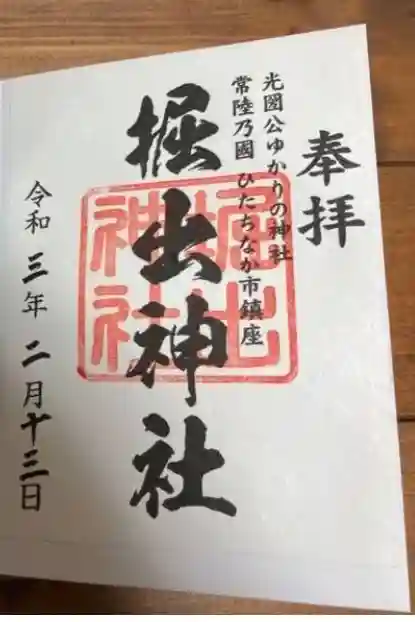 奉拝
光圀公ゆかりの神社
常陸乃國 ひたちなか市鎮座
掘出神社
堀出神社
令和 三年 二月十三日